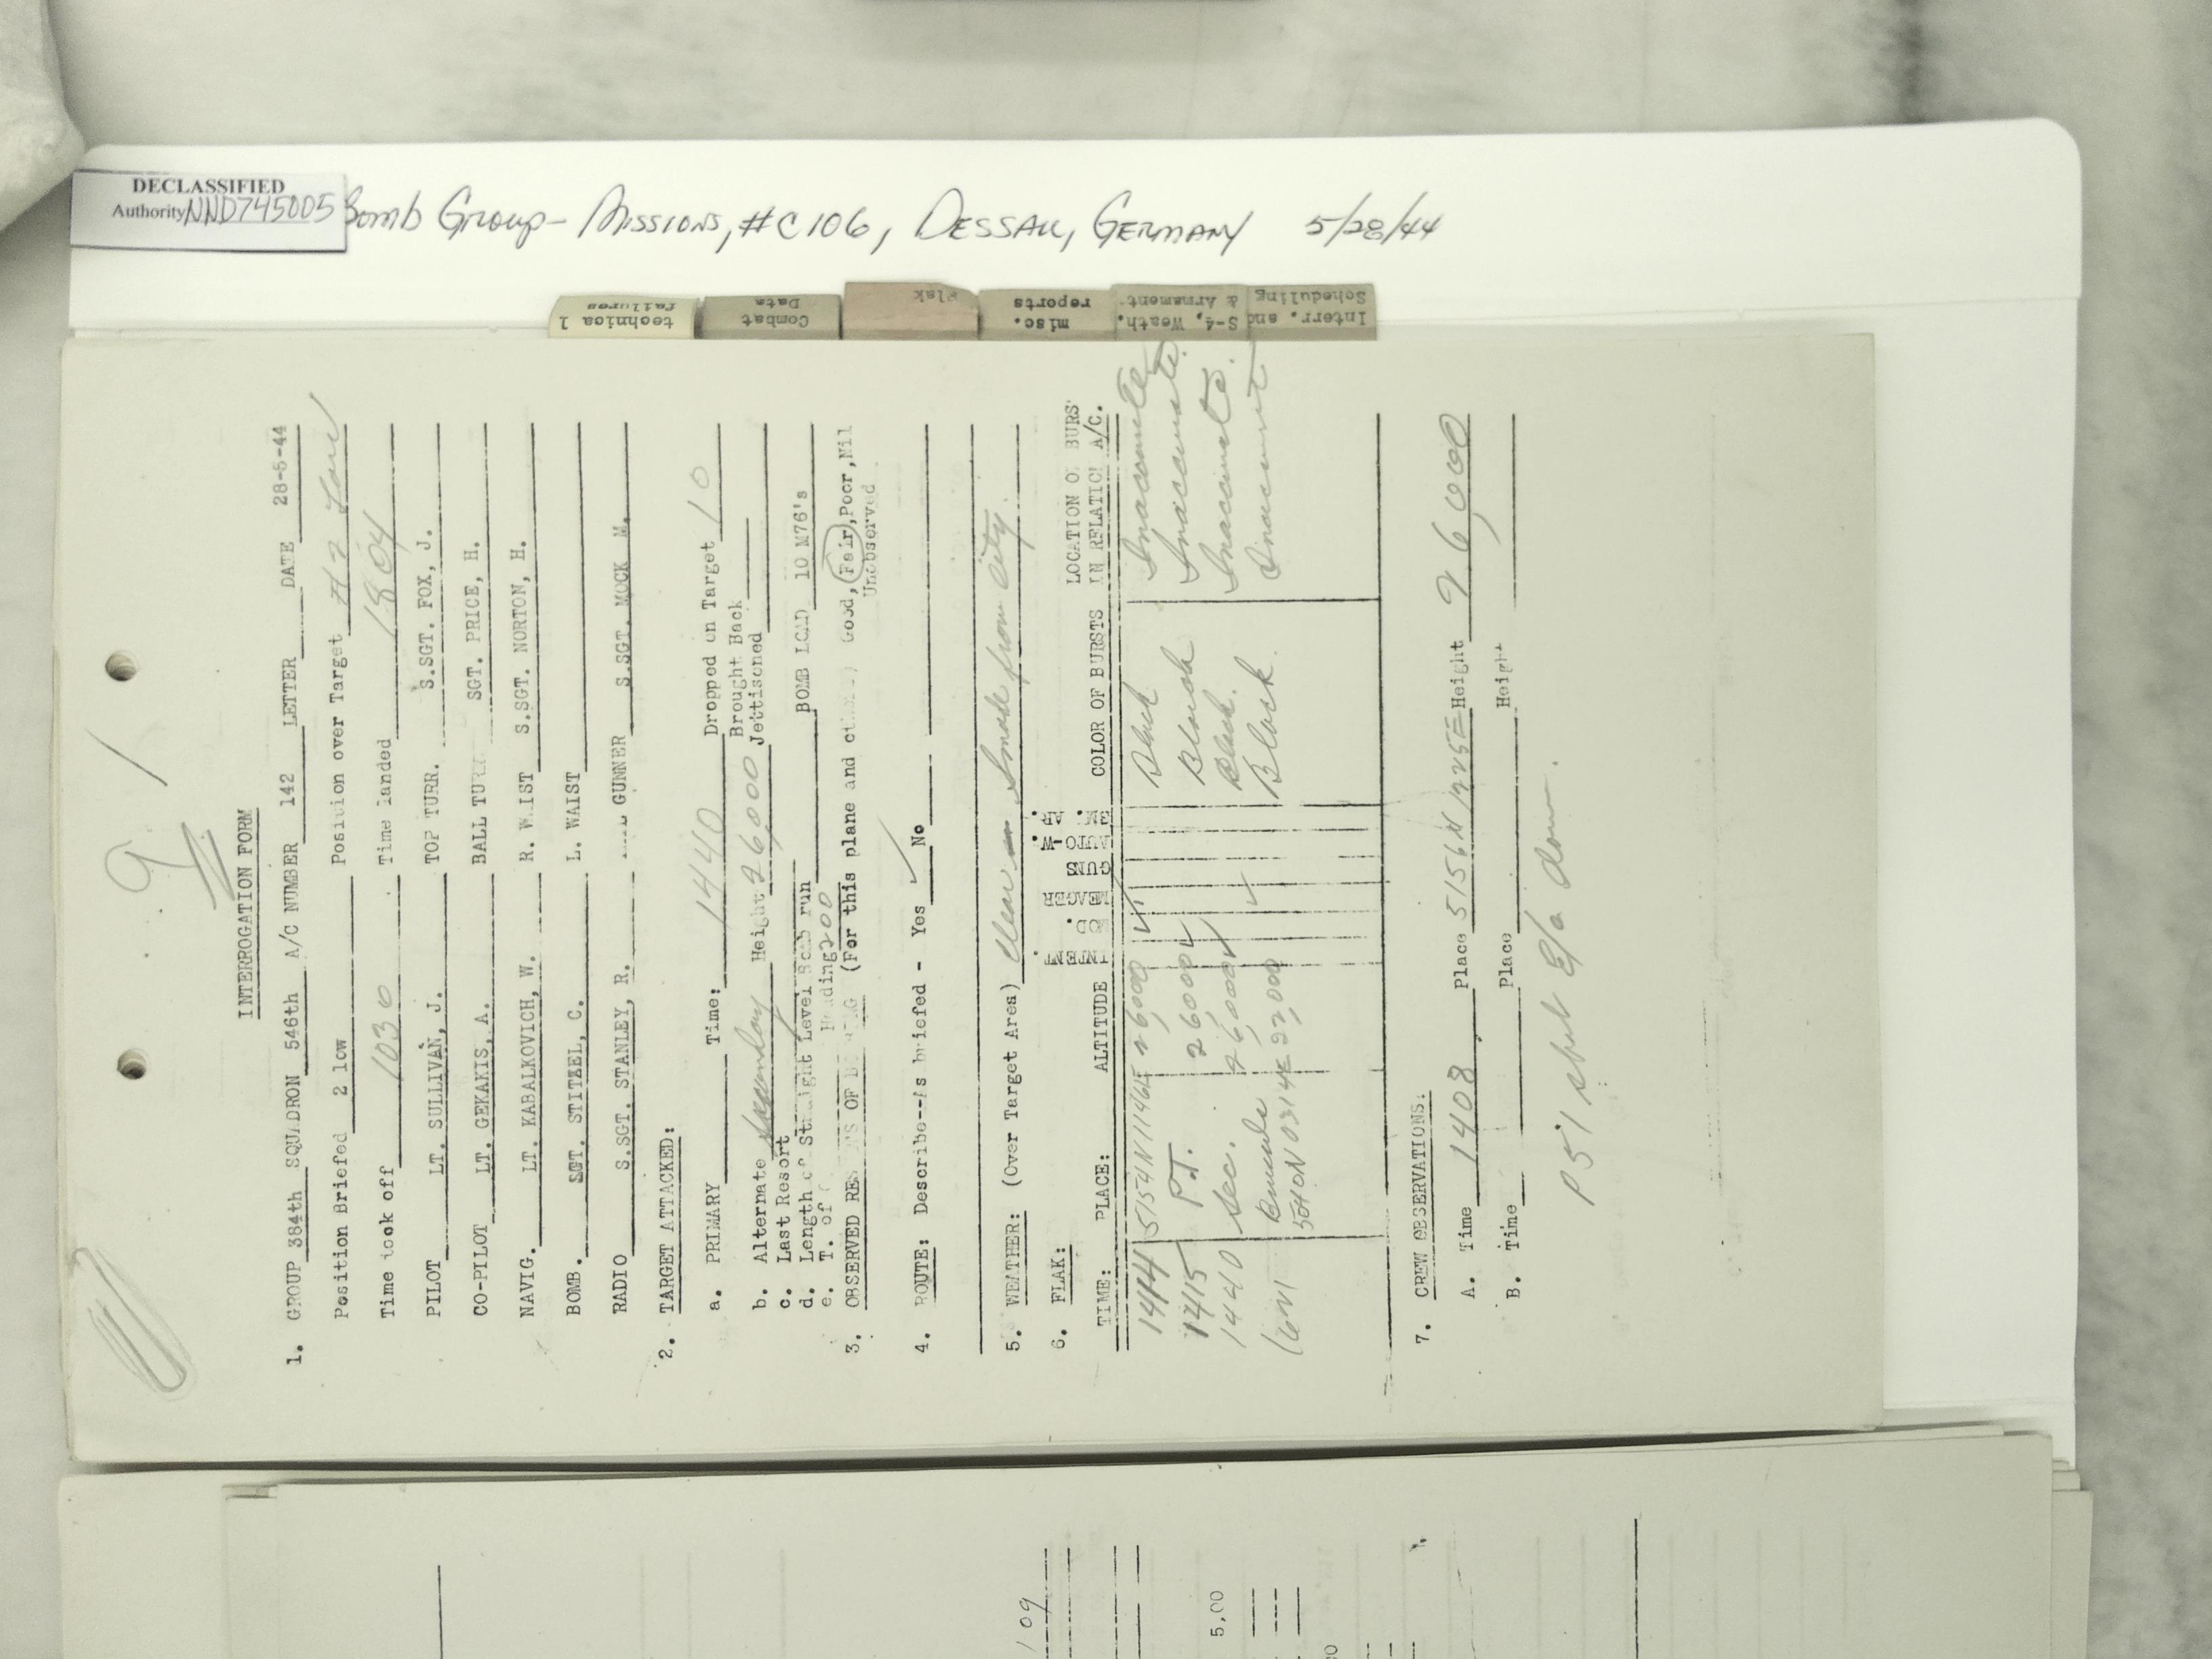 DECLASSIFIED
Authority NND745005
Bomb Group - Missions, #C106, Dessau, Germany 5/28/44
technical failures
Combat Data
Flak
misc. reports
S-4, Weath. & Armament
Interr. and Scheduling
9 1
INTERROGATION FORM
1. GROUP 384th SQUADRON 546th A/C NUMBER 142 LETTER DATE 28-5-44
Position Briefed 2 low Position over Target #2 Low
Time took off 1030 Time landed 1804
PILOT LT. SULLIVAN, J. TOP TURR. S.SGT. FOX, J.
CO-PILOT LT. GEKAKIS, A. BALL TURR SGT. PRICE, H.
NAVIG. LT. KABALKOVICH, W. R. WAIST S.SGT. NORTON, H.
BOMB. SGT. STITZEL, C. L. WAIST
RADIO S.SGT. STANLEY, R. GUNNER S.SGT. MOCK M.
2. TARGET ATTACKED:
a. PRIMARY Time: 1440 Dropped on Target 10
Brought Back
b. Alternate Secondary Height 26,000 Jettisoned
c. Last Resort
d. Length of Straight Level Bomb run BOMB LOAD 10 M76's
e. T. of Heading 200
3. OBSERVED RESULTS OF BOMBING (For this plane and others) Good, Fair, Poor, Nil
Unobserved
4. ROUTE: Describe--As briefed - Yes ✓ No
5. WEATHER: (Over Target Area) Clear Smoke from City.
6. FLAK:
LOCATION OF BURS
TIME: PLACE: ALTITUDE INTENT. MOD. MEAGER GUNS AUTO-W. GM. AR. COLOR OF BURSTS IN RELATION A/C.
1414 5154N 1146E 26,000 ✓ Black Inaccurate
1415 P.T. 26,000 ✓ Black Inaccurate.
1440 Sec. 26,000 ✓ Black. Inaccurate.
22,000 ✓ Black. Inaccurate
7. CREW OBSERVATIONS:
A. Time 1408 Place 5156N 1225E Height 26,000
B. Time Place Height
P51 shot E/a down.
109
5,00